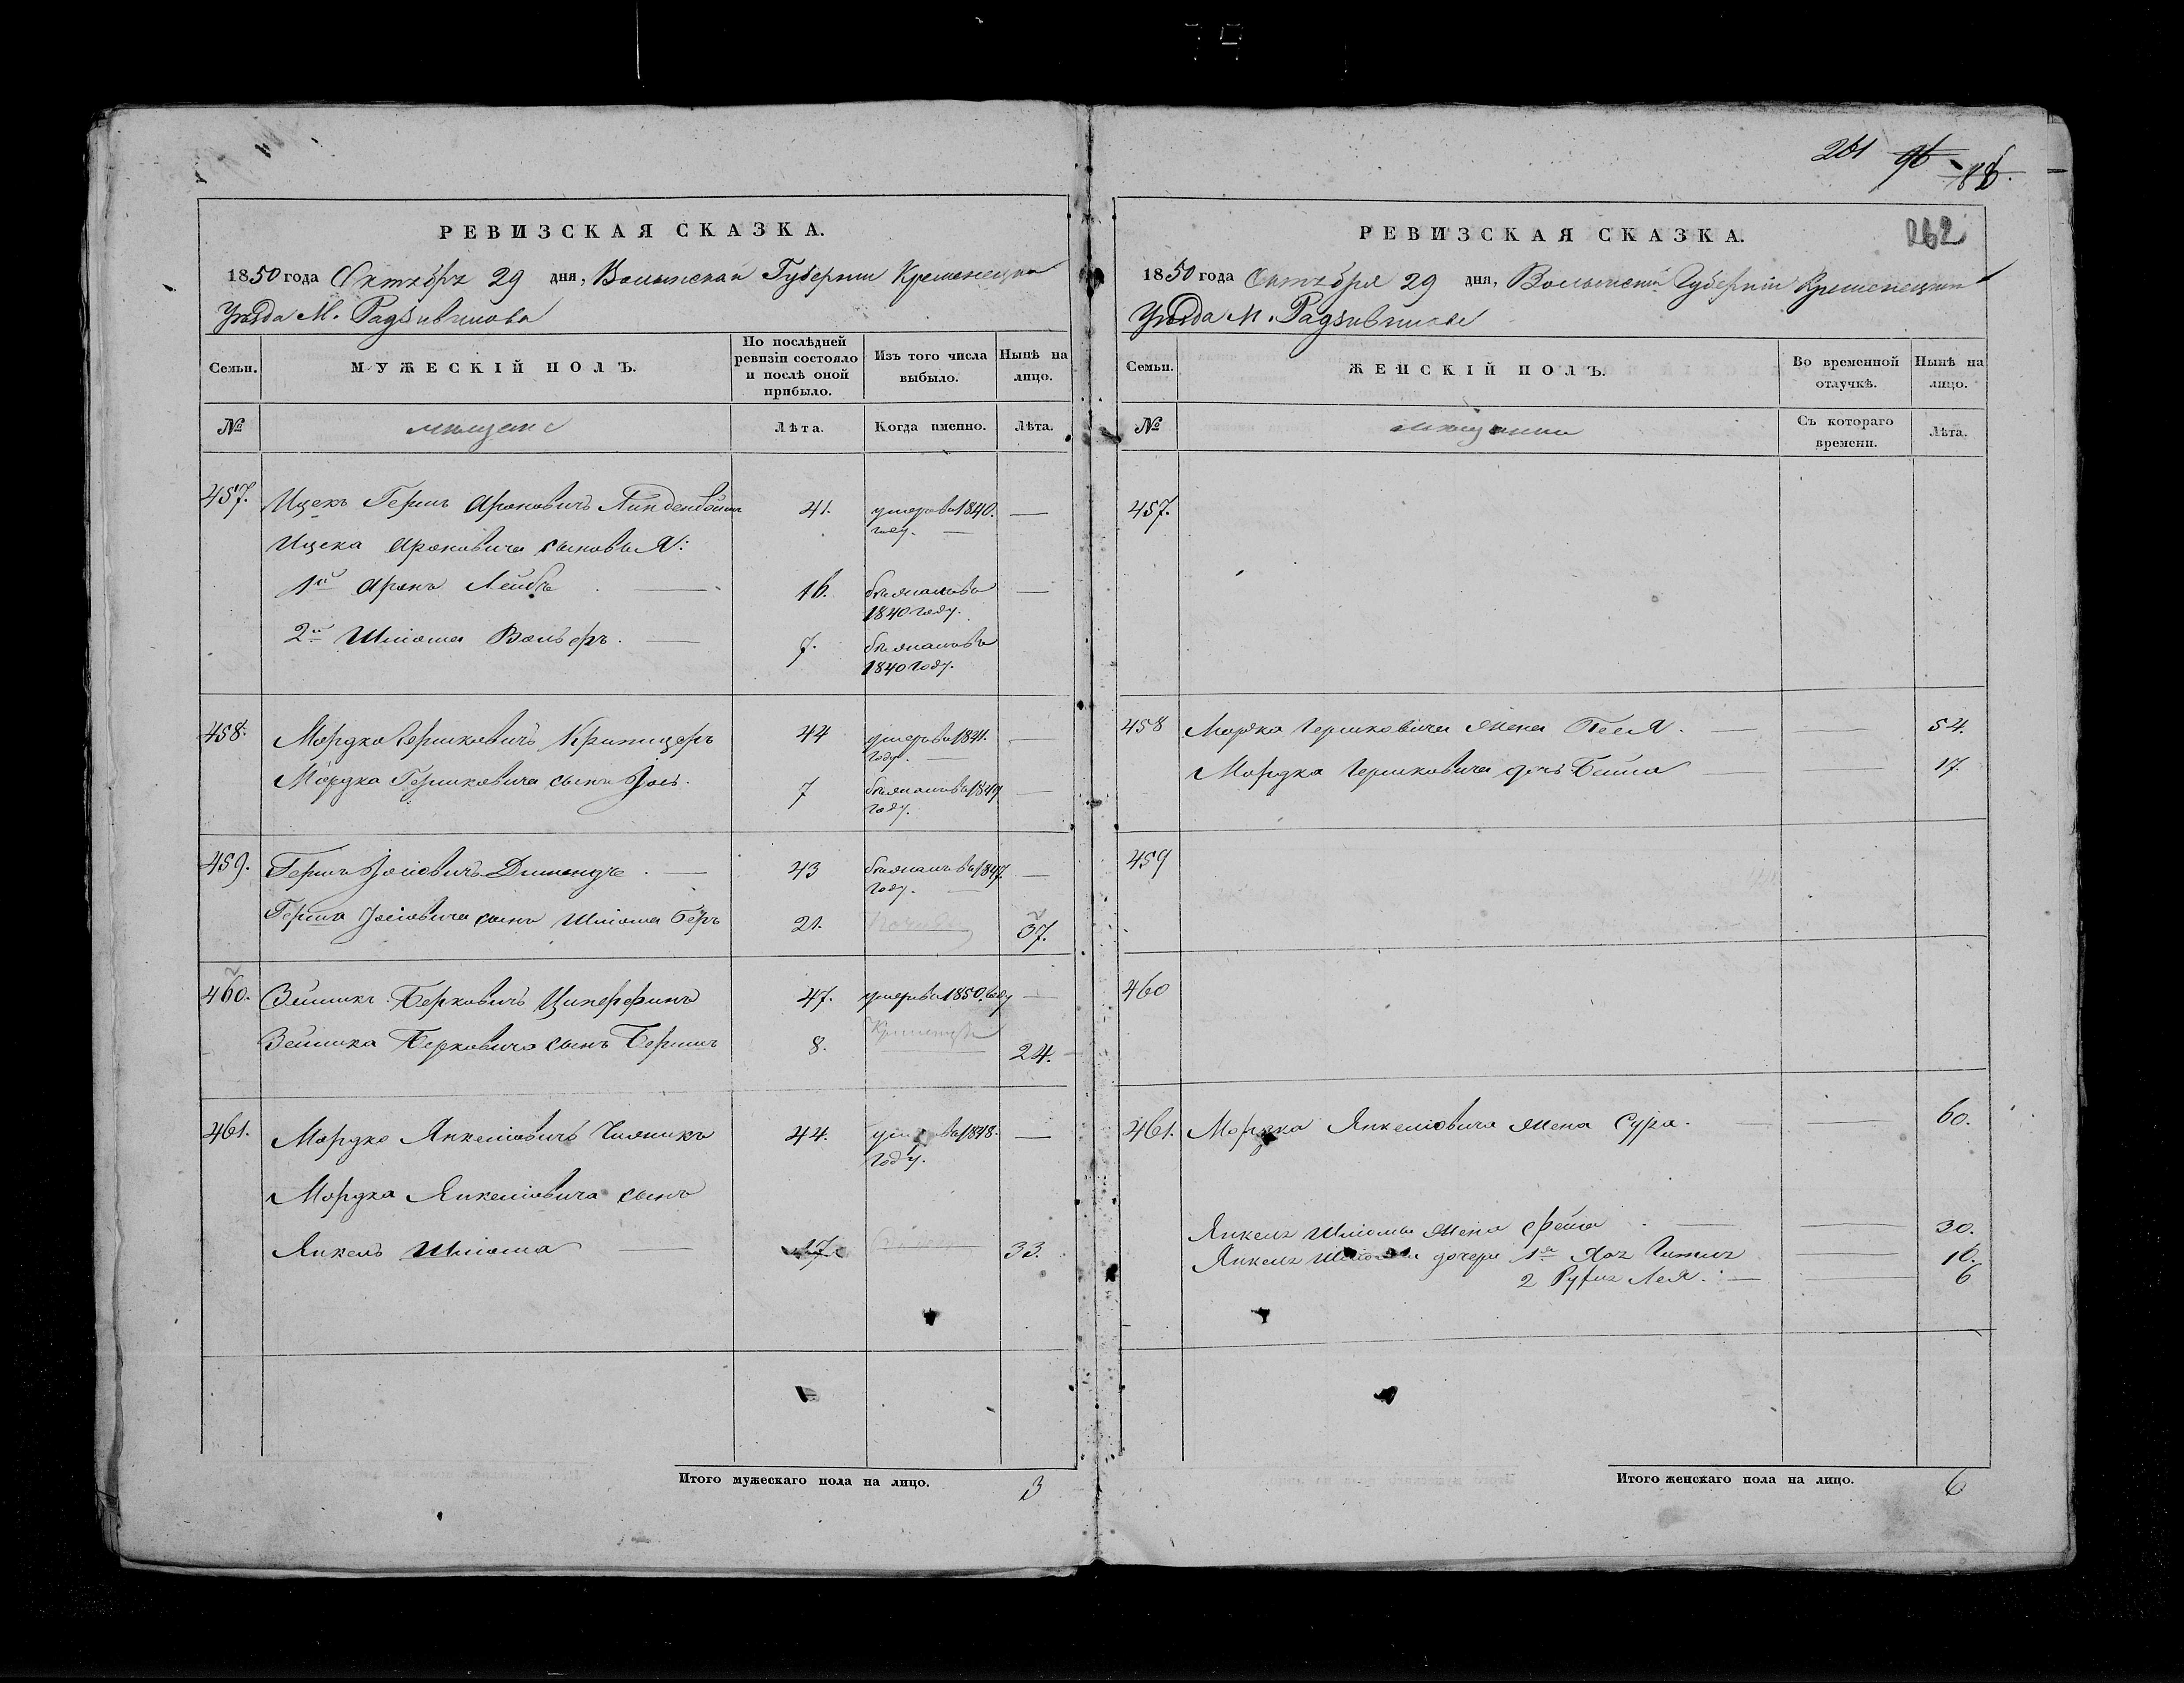 261 96 188.
262
РЕВИЗСКАЯ СКАЗКА.
1850 года Октября 29 дня, Волынской Губерніи Кременецкаго
Уѣзда М. Радзивилова
Семьи. МУЖЕСКІЙ ПОЛЪ. По послѣдней ревизіи состояло и послѣ оной прибыло. Изъ того числа выбыло. Нынѣ на лицо.
№ мѣщане Лѣта. Когда именно. Лѣта.
457. Ицекъ Гершъ Ароновичъ Линденбоимъ 41. умеръ въ 1840. году. —
Ицека Ароновича сыновья:
1й Аронъ Лейбъ — 16. бѣжалъ въ 1840 году. —
2й Шліома Вольфъ. — 7. бѣжалъ въ 1840 году.
458. Мордко Гершковичъ 44 умеръ въ 1841. году. —
Мордка Гершковича сынъ Іось. 7 бѣжалъ въ 1849 году. —
459. Гершъ Іосіовичъ 43 бѣжалъ въ 1847. году. —
Герша Іосіовича сынъ Шліома Беръ 21. 37.
460. Зейликъ Берковичъ Циперфинъ 47. умеръ въ 1850. году —
Зейлика Берковича сынъ Бершъ 8. 24.
461. Мордко Янкеліовичъ 44. умеръ въ 1848. году. —
Мордка Янкеліовича сынъ
Янкель Шліома — 17 33.
Итого мужескаго пола на лицо. 3
РЕВИЗСКАЯ СКАЗКА.
1850 года Октября 29 дня, Волынской Губерніи Кременецкаго
Уѣзда М. Радзивилова
Семьи. ЖЕНСКІЙ ПОЛЪ. Во временной отлучкѣ. Нынѣ на лицо.
№ мѣщанки Съ котораго времени. Лѣта.
457.
458 Мордка Гершковича жена Песя. — — 54.
Мордка Гершковича дочь Бейла — — 17.
459
460
461. Мордка Янкеліовича жена Сура. — — 60.
Янкеля Шліомы жена Фейга — — 30.
Янкеля Шліомы дочери 1я — 10.
2 Рухля Лея. — — 6
Итого женскаго пола на лицо. 6